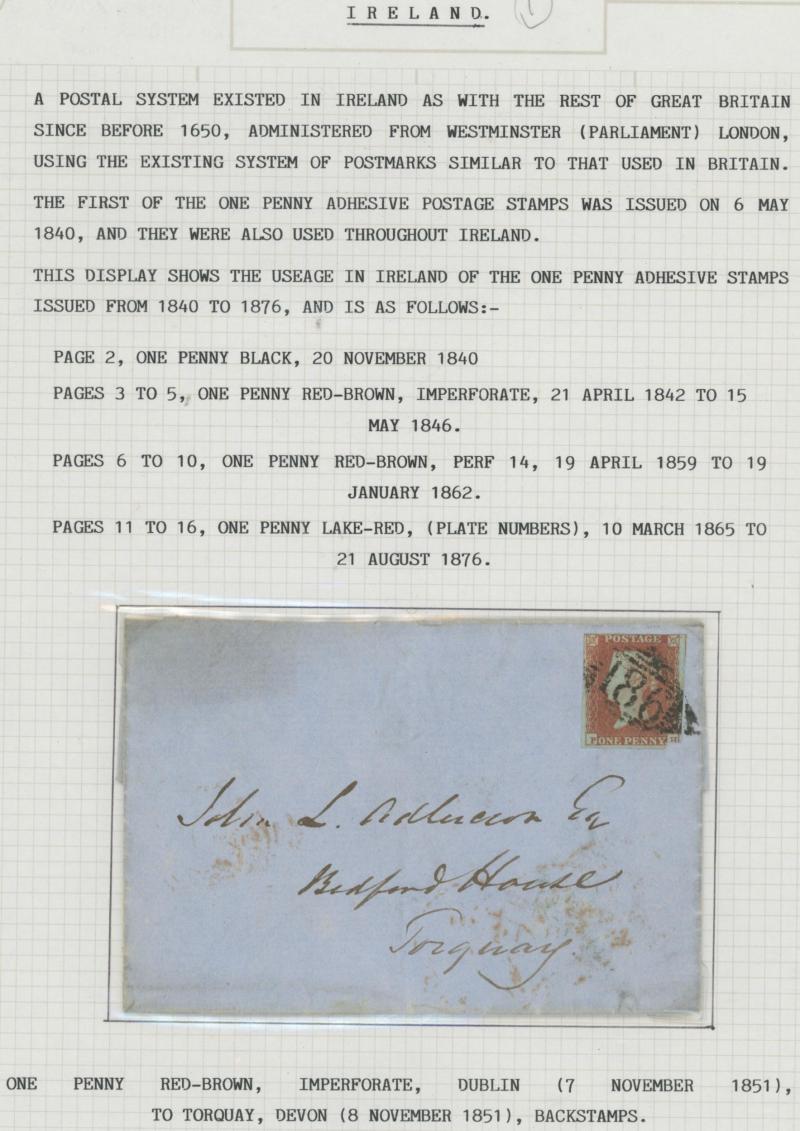 IRELAND.
1
A POSTAL SYSTEM EXISTED IN IRELAND AS WITH THE REST OF GREAT BRITAIN
SINCE BEFORE 1650, ADMINISTERED FROM WESTMINSTER (PARLIAMENT) LONDON,
USING THE EXISTING SYSTEM OF POSTMARKS SIMILAR TO THAT USED IN BRITAIN.
THE FIRST OF THE ONE PENNY ADHESIVE POSTAGE STAMPS WAS ISSUED ON 6 MAY
1840, AND THEY WERE ALSO USED THROUGHOUT IRELAND.
THIS DISPLAY SHOWS THE USEAGE IN IRELAND OF THE ONE PENNY ADHESIVE STAMPS
ISSUED FROM 1840 TO 1876, AND IS AS FOLLOWS:-
PAGE 2, ONE PENNY BLACK, 20 NOVEMBER 1840
PAGES 3 TO 5, ONE PENNY RED-BROWN, IMPERFORATE, 21 APRIL 1842 TO 15
MAY 1846.
PAGES 6 TO 10, ONE PENNY RED-BROWN, PERF 14, 19 APRIL 1859 TO 19
JANUARY 1862.
PAGES 11 TO 16, ONE PENNY LAKE-RED, (PLATE NUMBERS), 10 MARCH 1865 TO
21 AUGUST 1876.
POSTAGE
186
P ONE PENNY H
John L. Esq
Bedford House
Torquay.
ONE PENNY RED-BROWN, IMPERFORATE, DUBLIN (7 NOVEMBER 1851),
TO TORQUAY, DEVON (8 NOVEMBER 1851), BACKSTAMPS.